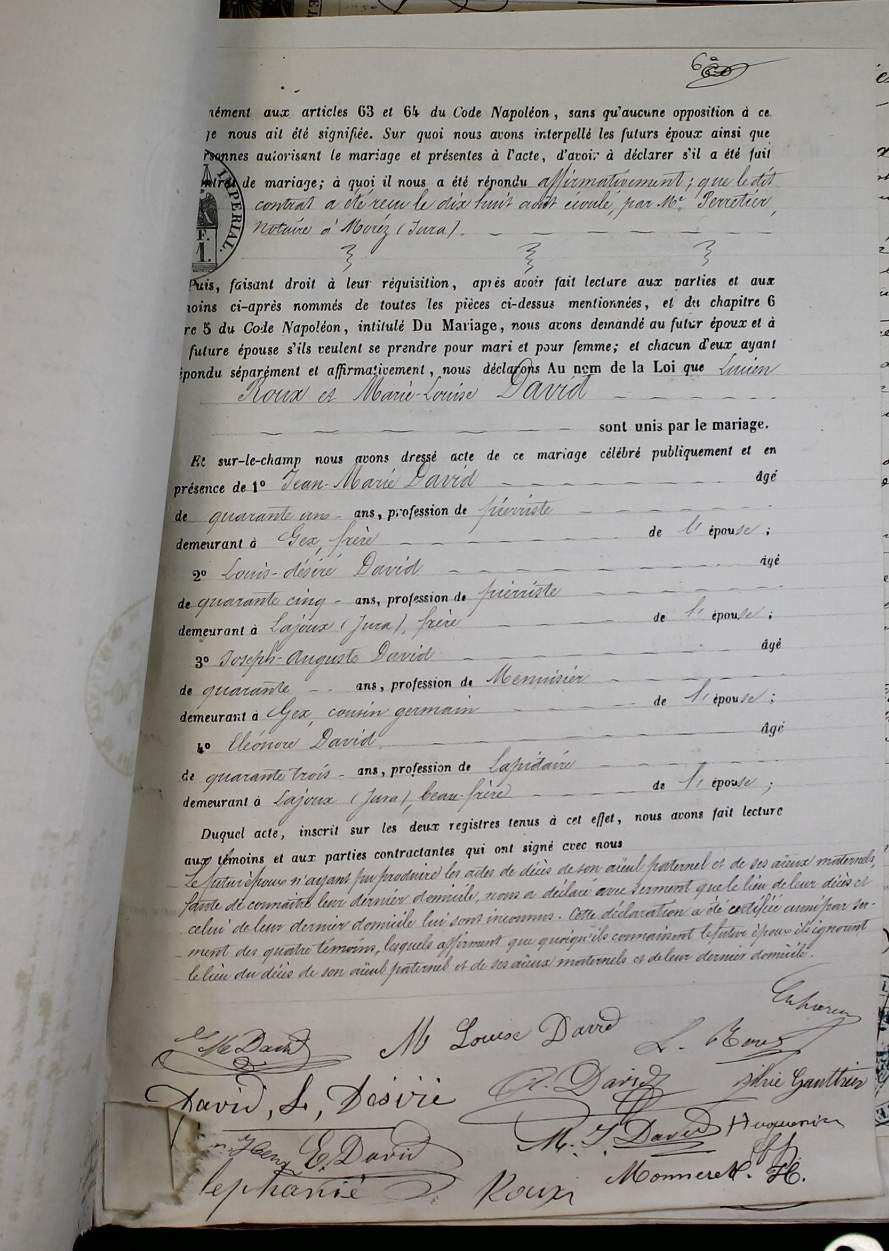 nément aux articles 63 et 64 du Code Napoléon, sans qu'aucune opposition à ce
ge nous ait été signifiée. Sur quoi nous avons interpellé les futurs époux ainsi que
rsonnes autorisant le mariage et présentes à l'acte, d'avoir à déclarer s'il a été fait
ntrat de mariage; à quoi il nous a été répondu affirmativement; que le dit
contrat a été reçu le dix huit août écoulé, par Me Perretier,
notaire à Moréz (Jura).
IMPERIAL.
F.
1.
Puis, faisant droit à leur réquisition, après avoir fait lecture aux parties et aux
moins ci-après nommés de toutes les pièces ci-dessus mentionnées, et du chapitre 6
re 5 du Code Napoléon, intitulé Du Mariage, nous avons demandé au futur époux et à
future épouse s'ils veulent se prendre pour mari et pour femme; et chacun d'eux ayant
épondu séparément et affirmativement, nous déclarons Au nom de la Loi que Lucien
Roux et Marie-Louise David
sont unis par le mariage.
Et sur-le-champ nous avons dressé acte de ce mariage célébré publiquement et en
présence de 1° Jean-Marie David âgé
de quarante un ans, profession de pierriste
demeurant à Gex, frère de l'épouse;
2° Louis-désiré David âgé
de quarante cinq ans, profession de pierriste
demeurant à Lajoux (Jura), frère de l'épouse;
3° Joseph-Auguste David âgé
de quarante ans, profession de Menuisier
demeurant à Gex, cousin germain de l'épouse;
4° Eléonore David âgé
de quarante trois ans, profession de Lapidaire
demeurant à Lajoux (Jura), beau-frère de l'épouse;
Duquel acte, inscrit sur les deux registres tenus à cet effet, nous avons fait lecture
aux témoins et aux parties contractantes qui ont signé avec nous
Le futur époux n'ayant pu produire les actes de décès de son aïeul paternel et de ses aïeux maternels,
faute de connaitre leur dernier domicile, nous a déclaré avec serment que le lieu de leur décès et
celui de leur dernier domicile lui sont inconnus. Cette déclaration a été certifiée aussi par ser-
ment des quatre témoins, lesquels affirment que quoiqu'ils connaissent le futur époux ils ignorent
le lieu du décès de son aïeul paternel et de ses aïeux maternels et de leur dernier domicile.
JM David M Louise David L. Roux
David, L, Désiré A. David Silvie Gauthier
E. David M. J. David Huguenin
Stéphanie Roux Monneret. H.